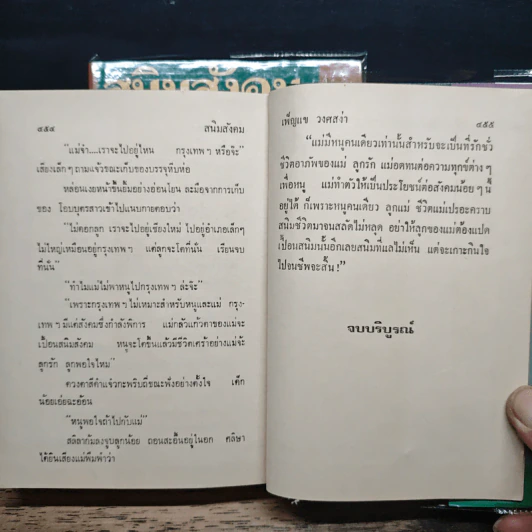 สนิมสังคม
๔๕๔ สนิมสังคม
"แม่จ๋า....เราจะไปอยู่ไหน กรุงเทพ ฯ หรือจ๊ะ"
เสียงเล็ก ๆ ถามแจ้วขณะเก็บของบรรจุหีบห่อ
หล่อนเงยหน้าขึ้นยิ้มอย่างอ่อนโยน ละมือจากการเก็บ
ของ โอบบุตรสาวเข้าไปแนบกายตอบว่า
"ไม่ดอกลูก เราจะไปอยู่เชียงใหม่ ไปอยู่อำเภอเล็กๆ
ไม่ใหญ่เหมือนอยู่กรุงเทพ ฯ แต่ลูกจะโตที่นั่น เรียนจบ
ที่นั่น"
"ทำไมแม่ไม่พาหนูไปกรุงเทพ ฯ ล่ะจ๊ะ"
"เพราะกรุงเทพ ฯ ไม่เหมาะสำหรับหนูและแม่ กรุง-
เทพ ฯ มีแต่สังคมซึ่งกำลังพิการ แม่กลัวแก้วตาของแม่จะ
เปื้อนสนิมสังคม หนูจะโตขึ้นแล้วมีชีวิตเศร้าอย่างแม่จ้ะ
ลูกรัก ลูกพอใจไหม"
ดวงตาสีดำแจ๋วกะพริบถี่ขณะฟังอย่างตั้งใจ เด็ก
น้อยเอ่ยฉะอ้อน
"หนูพอใจถ้าไปกับแม่"
สลิลาก้มลงจูบลูกน้อย ถอนสะอื้นอยู่ในอก คลิษา
ได้ยินเสียงแม่พึมพำว่า
เพ็ญแข วงศสง่า ๔๕๕
"แม่มีหนูคนเดียวเท่านั้นสำหรับจะเป็นที่รักชั่ว
ชีวิตอาภัพของแม่ ลูกรัก แม่อดทนต่อความทุกข์ต่าง ๆ
เพื่อหนู แม่ทำตัวให้เป็นประโยชน์ต่อสังคมน้อย ๆ นี้
อยู่ได้ ก็เพราะหนูคนเดียว ลูกแม่ ชีวิตแม่เปรอะคราบ
สนิมชีวิตมาจนสลัดไม่หลุด อย่าให้ลูกของแม่ต้องแปด
เปื้อนเสนิมนั้นอีกเลยสนิมที่แลไม่เห็น แต่จะเกาะกินใจ
ไปจนชีพจะสิ้น!"
จบบริบูรณ์